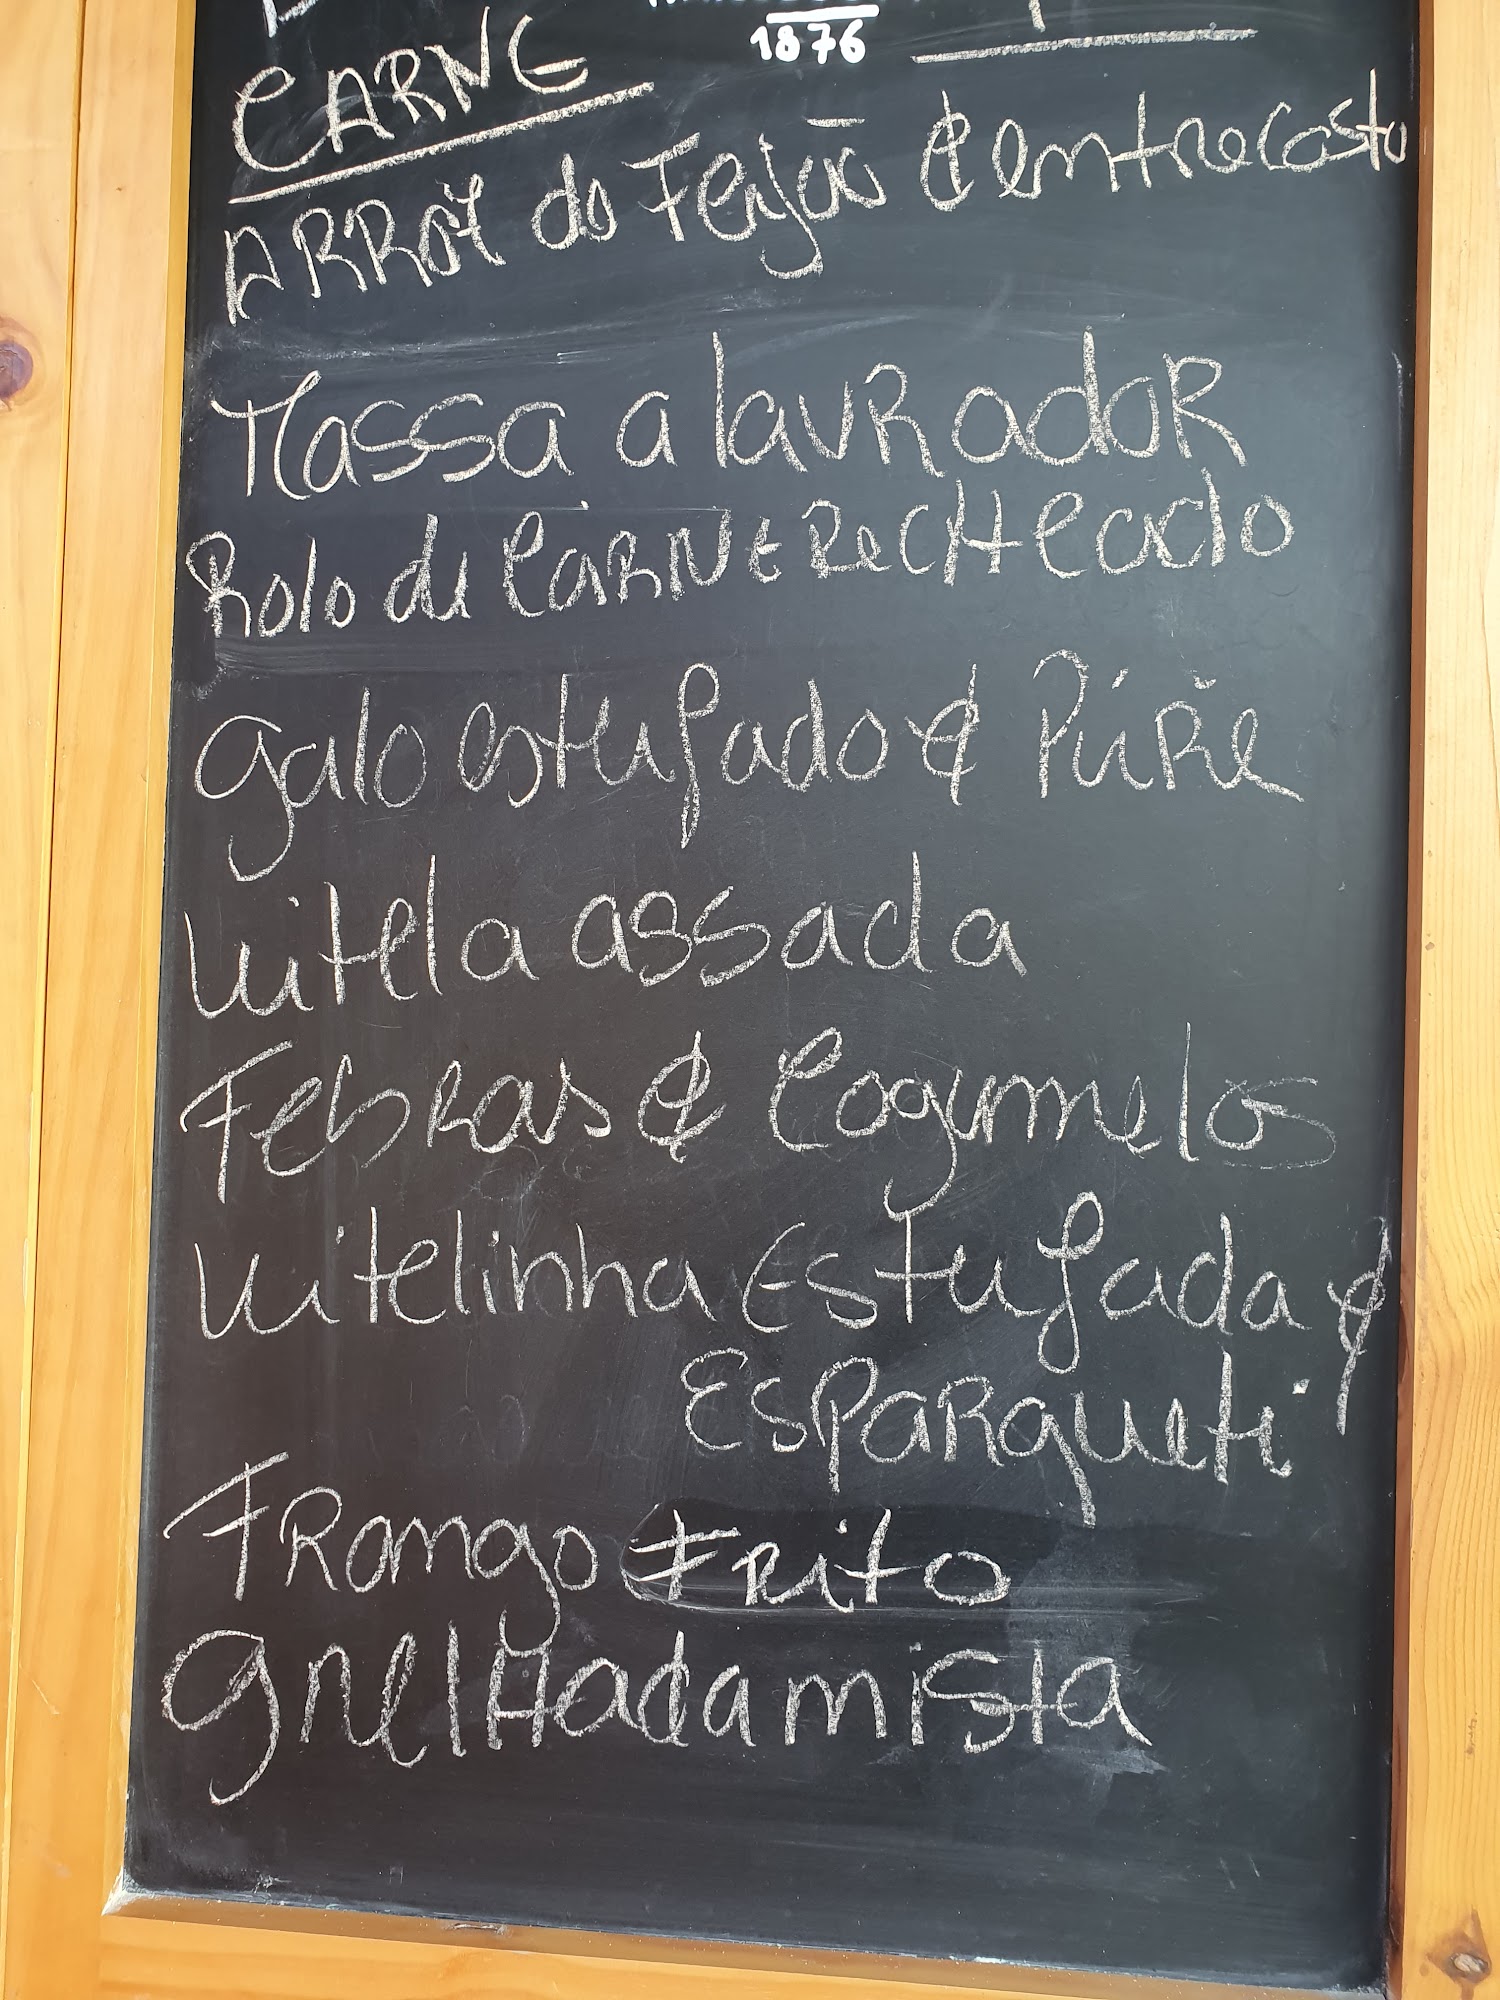 1876
CARNE
ARROZ de Feijão ¢ entrecosto
Massa a lavRadoR
Rolo de CaRNE RecHeado
galo estufado ¢ PúRe
Vitela assada
FebRas ¢ Cogumelos
Vitelinha Estufada ¢
ESPARgueti
FRango FRito
grelHada mista